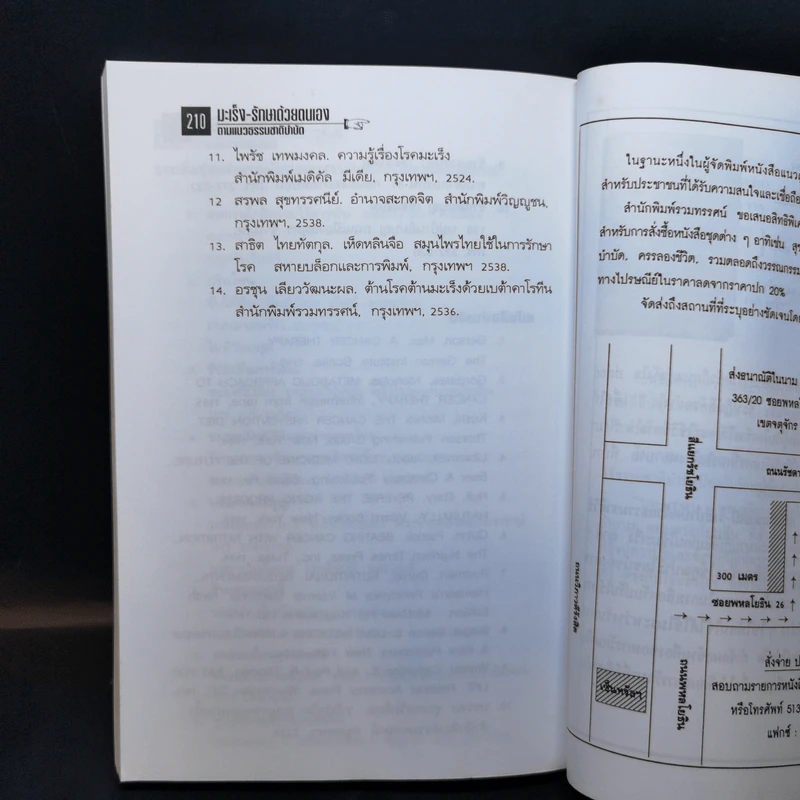 210 มะเร็ง-รักษาด้วยตนเอง
ตามแนวธรรมชาติบำบัด
11. ไพรัช เทพมงคล. ความรู้เรื่องโรคมะเร็ง
สำนักพิมพ์เมดิคัล มีเดีย, กรุงเทพฯ, 2524.
12 สรพล สุขทรรศนีย์. อำนาจสะกดจิต สำนักพิมพ์วิญญูชน,
กรุงเทพฯ, 2538.
13. สาธิต ไทยทัตกุล. เห็ดหลินจือ สมุนไพรไทยใช้ในการรักษา
โรค สหายบล็อกและการพิมพ์, กรุงเทพฯ 2538.
14. อรชุน เลียววัฒนะผล. ต้านโรคต้านมะเร็งด้วยเบต้าคาโรทีน
สำนักพิมพ์รวมทรรศน์, กรุงเทพฯ, 2536.
ในฐานะหนึ่งในผู้จัดพิมพ์หนังสือแนว
สำหรับประชาชนที่ได้รับความสนใจและเชื่อถือ
สำนักพิมพ์รวมทรรศน์ ขอเสนอสิทธิพิเศ
สำหรับการสั่งซื้อหนังสือชุดต่าง ๆ อาทิเช่น สุข
บำบัด, ครรลองชีวิต, รวมตลอดถึงวรรณกรรม
ทางไปรษณีย์ในราคาลดจากราคาปก 20%
จัดส่งถึงสถานที่ที่ระบุอย่างชัดเจนโดย
ส่งธนาณัติในนาม
363/20 ซอยพหลโ
เขตจตุจักร
สี่แยกรัชโยธิน
ถนนรัชดา
300 เมตร
ซอยพหลโยธิน 26
ถนนวิภาวดีรังสิต
ถนนพหลโยธิน
เซ็นทรัลฯ
สั่งจ่าย ป
สอบถามรายการหนังสื
หรือโทรศัพท์ 513
แฟกซ์ :